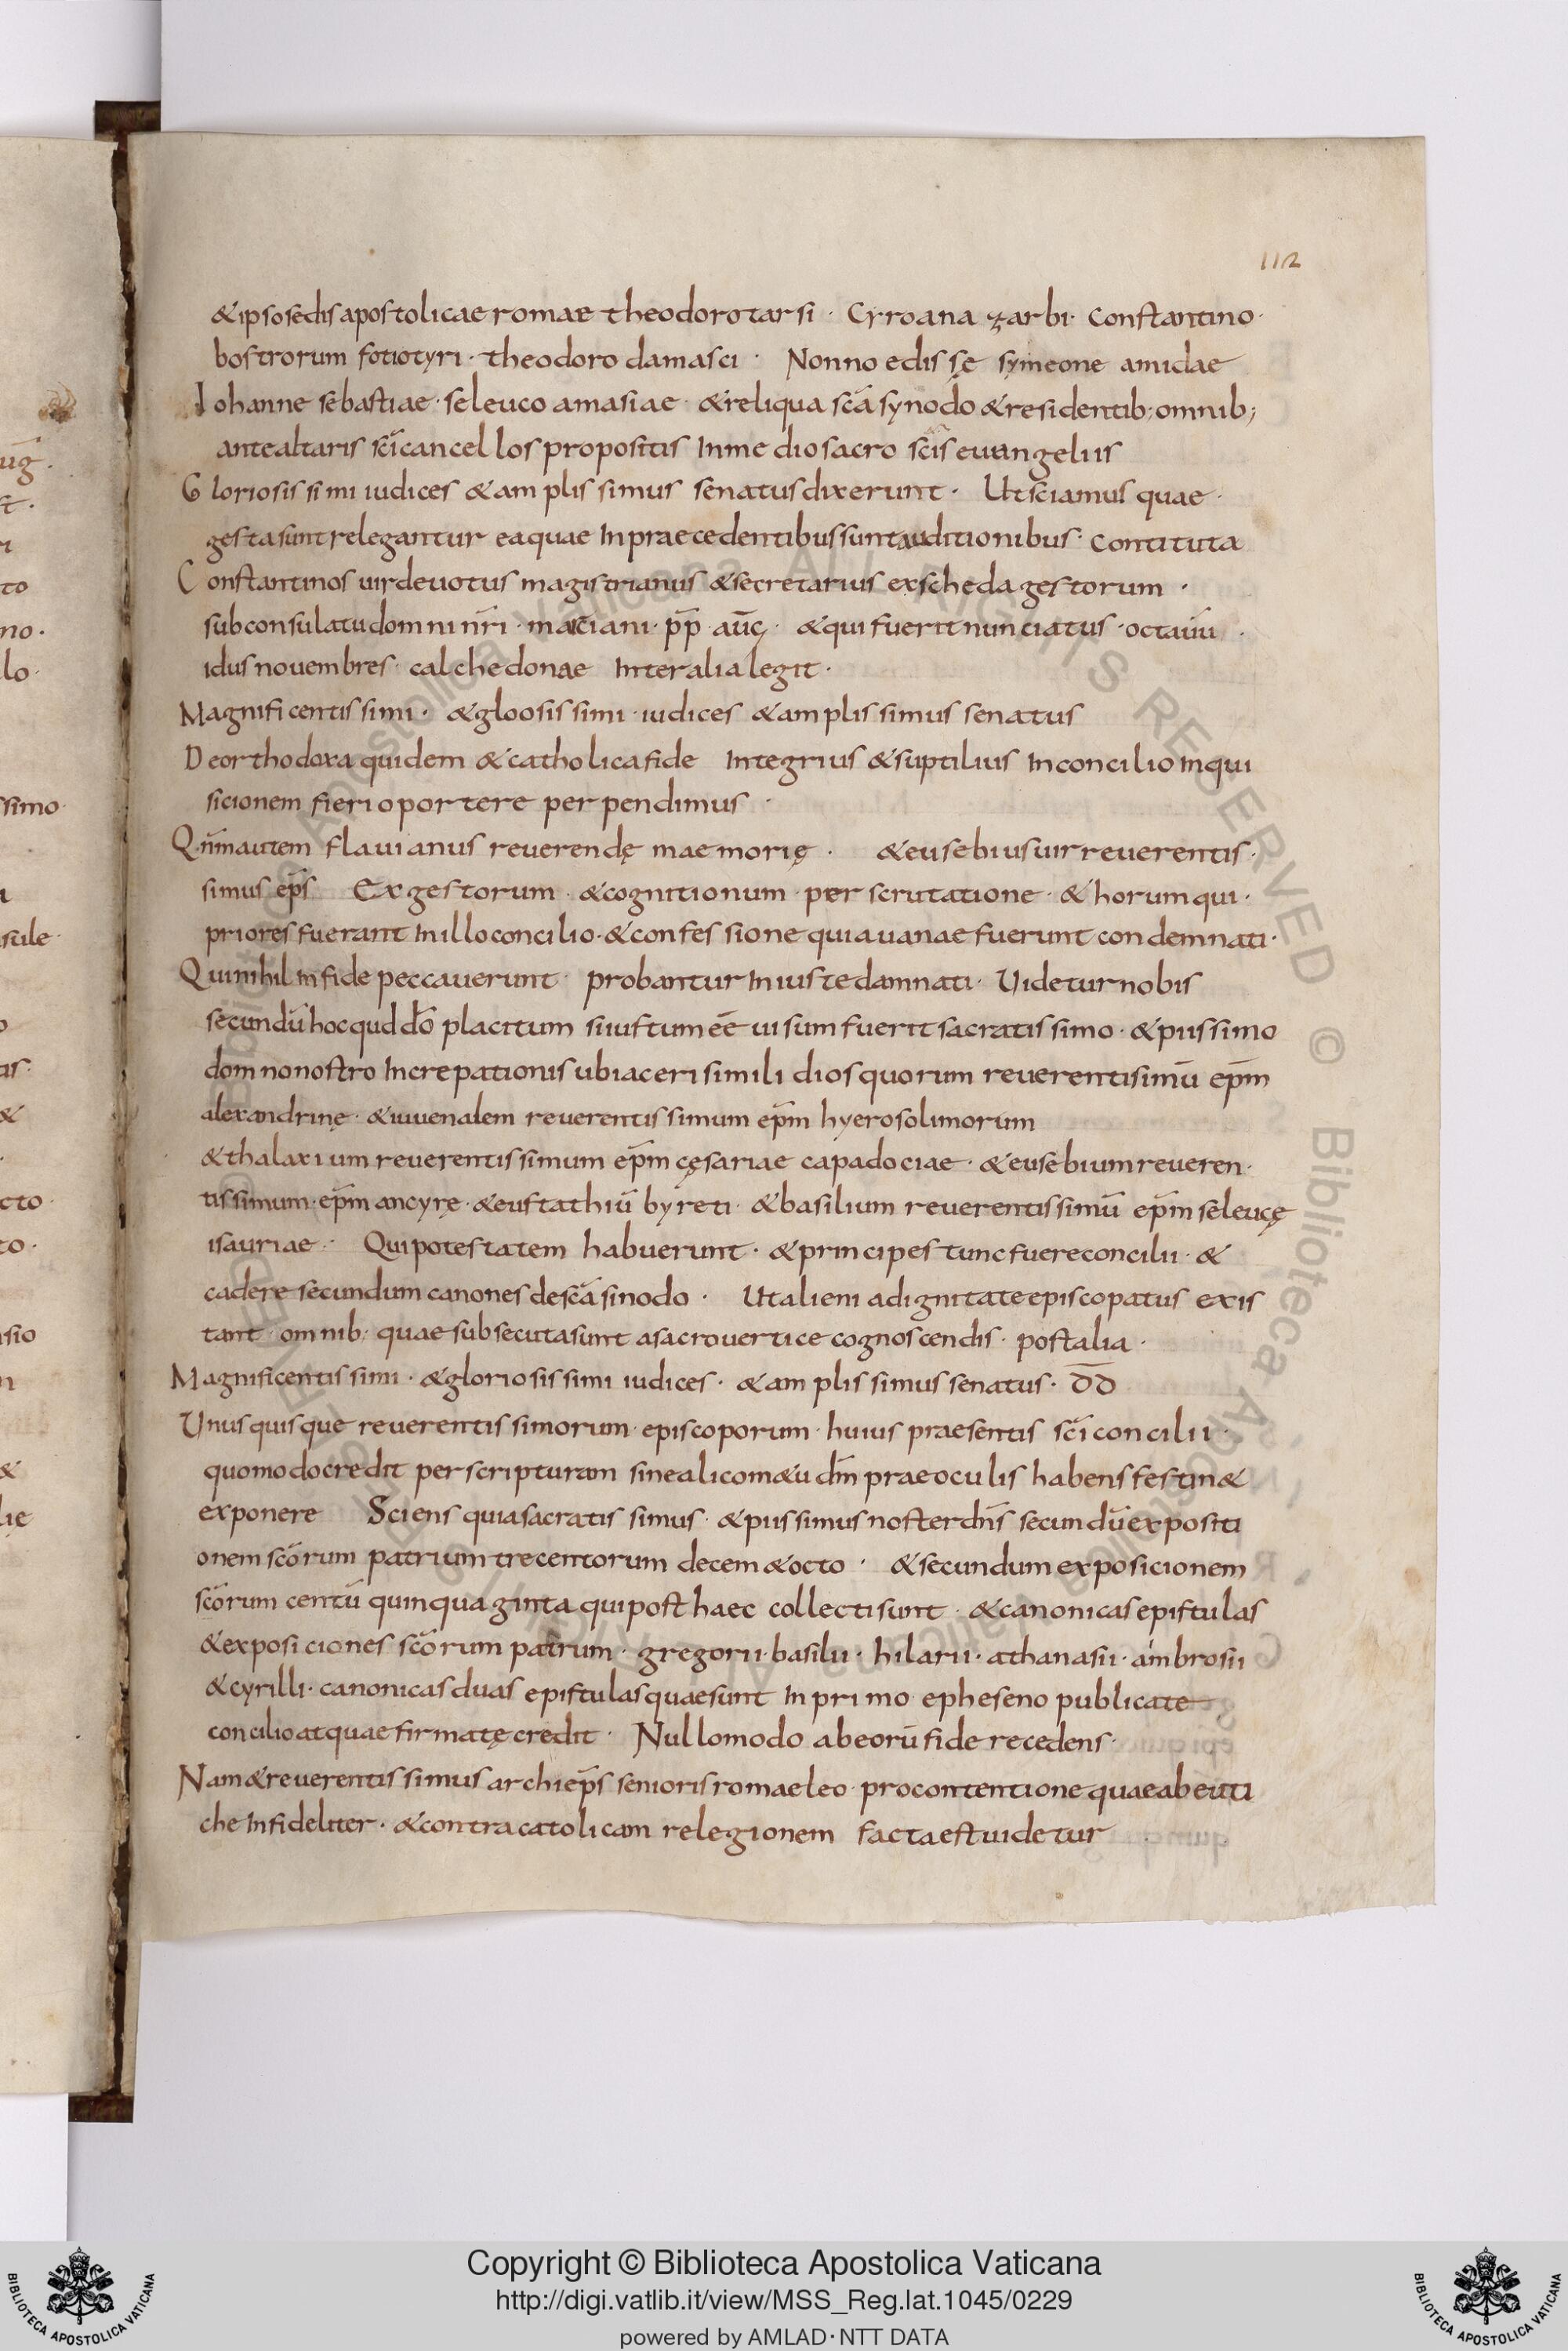 112
&ipso sedis apostolicae romae theodoro tarsi · Cyro anazarbi · Constantino ·
bostrorum fotio tyri · theodoro damasci · Nonno edissę symeone amidae
Iohanne sebastiae · seleuco amasiae · & reliqua scā synodo & residentib; omnib;
ante altaris scī cancellos propositis In medio sacro scīs euangeliis
Gloriosissimi iudices & amplissimus senatus dixerunt · Ut sciamus quae ·
gesta sunt relegantur ea quae In praecedentibus sunt auditionibus · contituta
Constantinos uir deuotus magistrianus & secretarius ex scheda gestorum ·
sub consulatu domni nr̄i · marciani · pp̄ · aūg · & qui fuerit nunciatus · octauu ·
idus nouembres · calchedonae Inter alia legit ·
Magnificentissimi · & gloosissimi · iudices & amplissimus senatus
De orthodoxa quidem & catholica fide Integrius & suptilius In concilio Inqui
sicionem fieri oportere perpendimus ·
Qn̄m autem flauianus reuerendę maemorię · & eusebius uir reuerentis ·
simus ep̄s Ex gestorum · & cognitionum · perscrutatione · & horum qui ·
priores fuerant In illo concilio · & confessione quia uanae fuerunt condemnati ·
Qui nihil In fide peccauerunt · probantur Iniuste damnati · Uidetur nobis
secundū hoc qud dō placitum si iustum eē uisum fuerit sacratissimo · & piissimo
domno nostro Increpationi subiaceri simili diosquorum reuerentisimū ep̄m
alexandrinę · & iuuenalem reuerentissimum ep̄m hyerosolimorum
& thalaxium reuerentissimum ep̄m cęsariae capadociae · & eusebium reueren ·
tissimum · ep̄m ancyrę · & eustathiū byreti · & basilium reuerentissimū ep̄m seleucę
isauriae · Qui potestatem habuerunt · & principes tunc fuere concilii · &
cadere secundum canones de scā sinodo · Ut alieni a dignitate episcopatus exis
tant · omnib; quae subsecuta sunt a sacro uertice cognoscendis · post alia ·
Magnificentissimi · & gloriosissimi iudices · & amplissimus senatus · d̄d̄
Unusquisque reuerentissimorum · episcoporum · huius praesentis scī concilii ·
quomodo credit per scripturam sine alico m&u dm̄ prae oculis habens festin&
exponere Sciens quia sacratissimus · & piissimus noster dn̄s secundū expositi
onem scōrum patrium trecentorum decem & octo · & secundum exposicionem
scōrum centū quinquaginta qui post haec collecti sunt · & canonicas epistulas
& exposiciones scōrum patrum · gregorii · basilii · hilarii · athanasii · ambrosii
& cyrilli · canonicas duas epistulas quae sunt In primo epheseno publicate
concilio atquae firmatę credit · Nullo modo ab eorū fide recedens ·
Nam & reuerentissimus archiep̄s senioris romae leo · pro contentione quae ab euti
che Infideliter · & contra catolicam relegionem facta est uidetur
Copyright © Biblioteca Apostolica Vaticana
http://digi.vatlib.it/view/MSS_Reg.lat.1045/0229
powered by AMLAD · NTT DATA
BIBLIOTECA APOSTOLICA VATICANA
BIBLIOTECA APOSTOLICA VATICANA